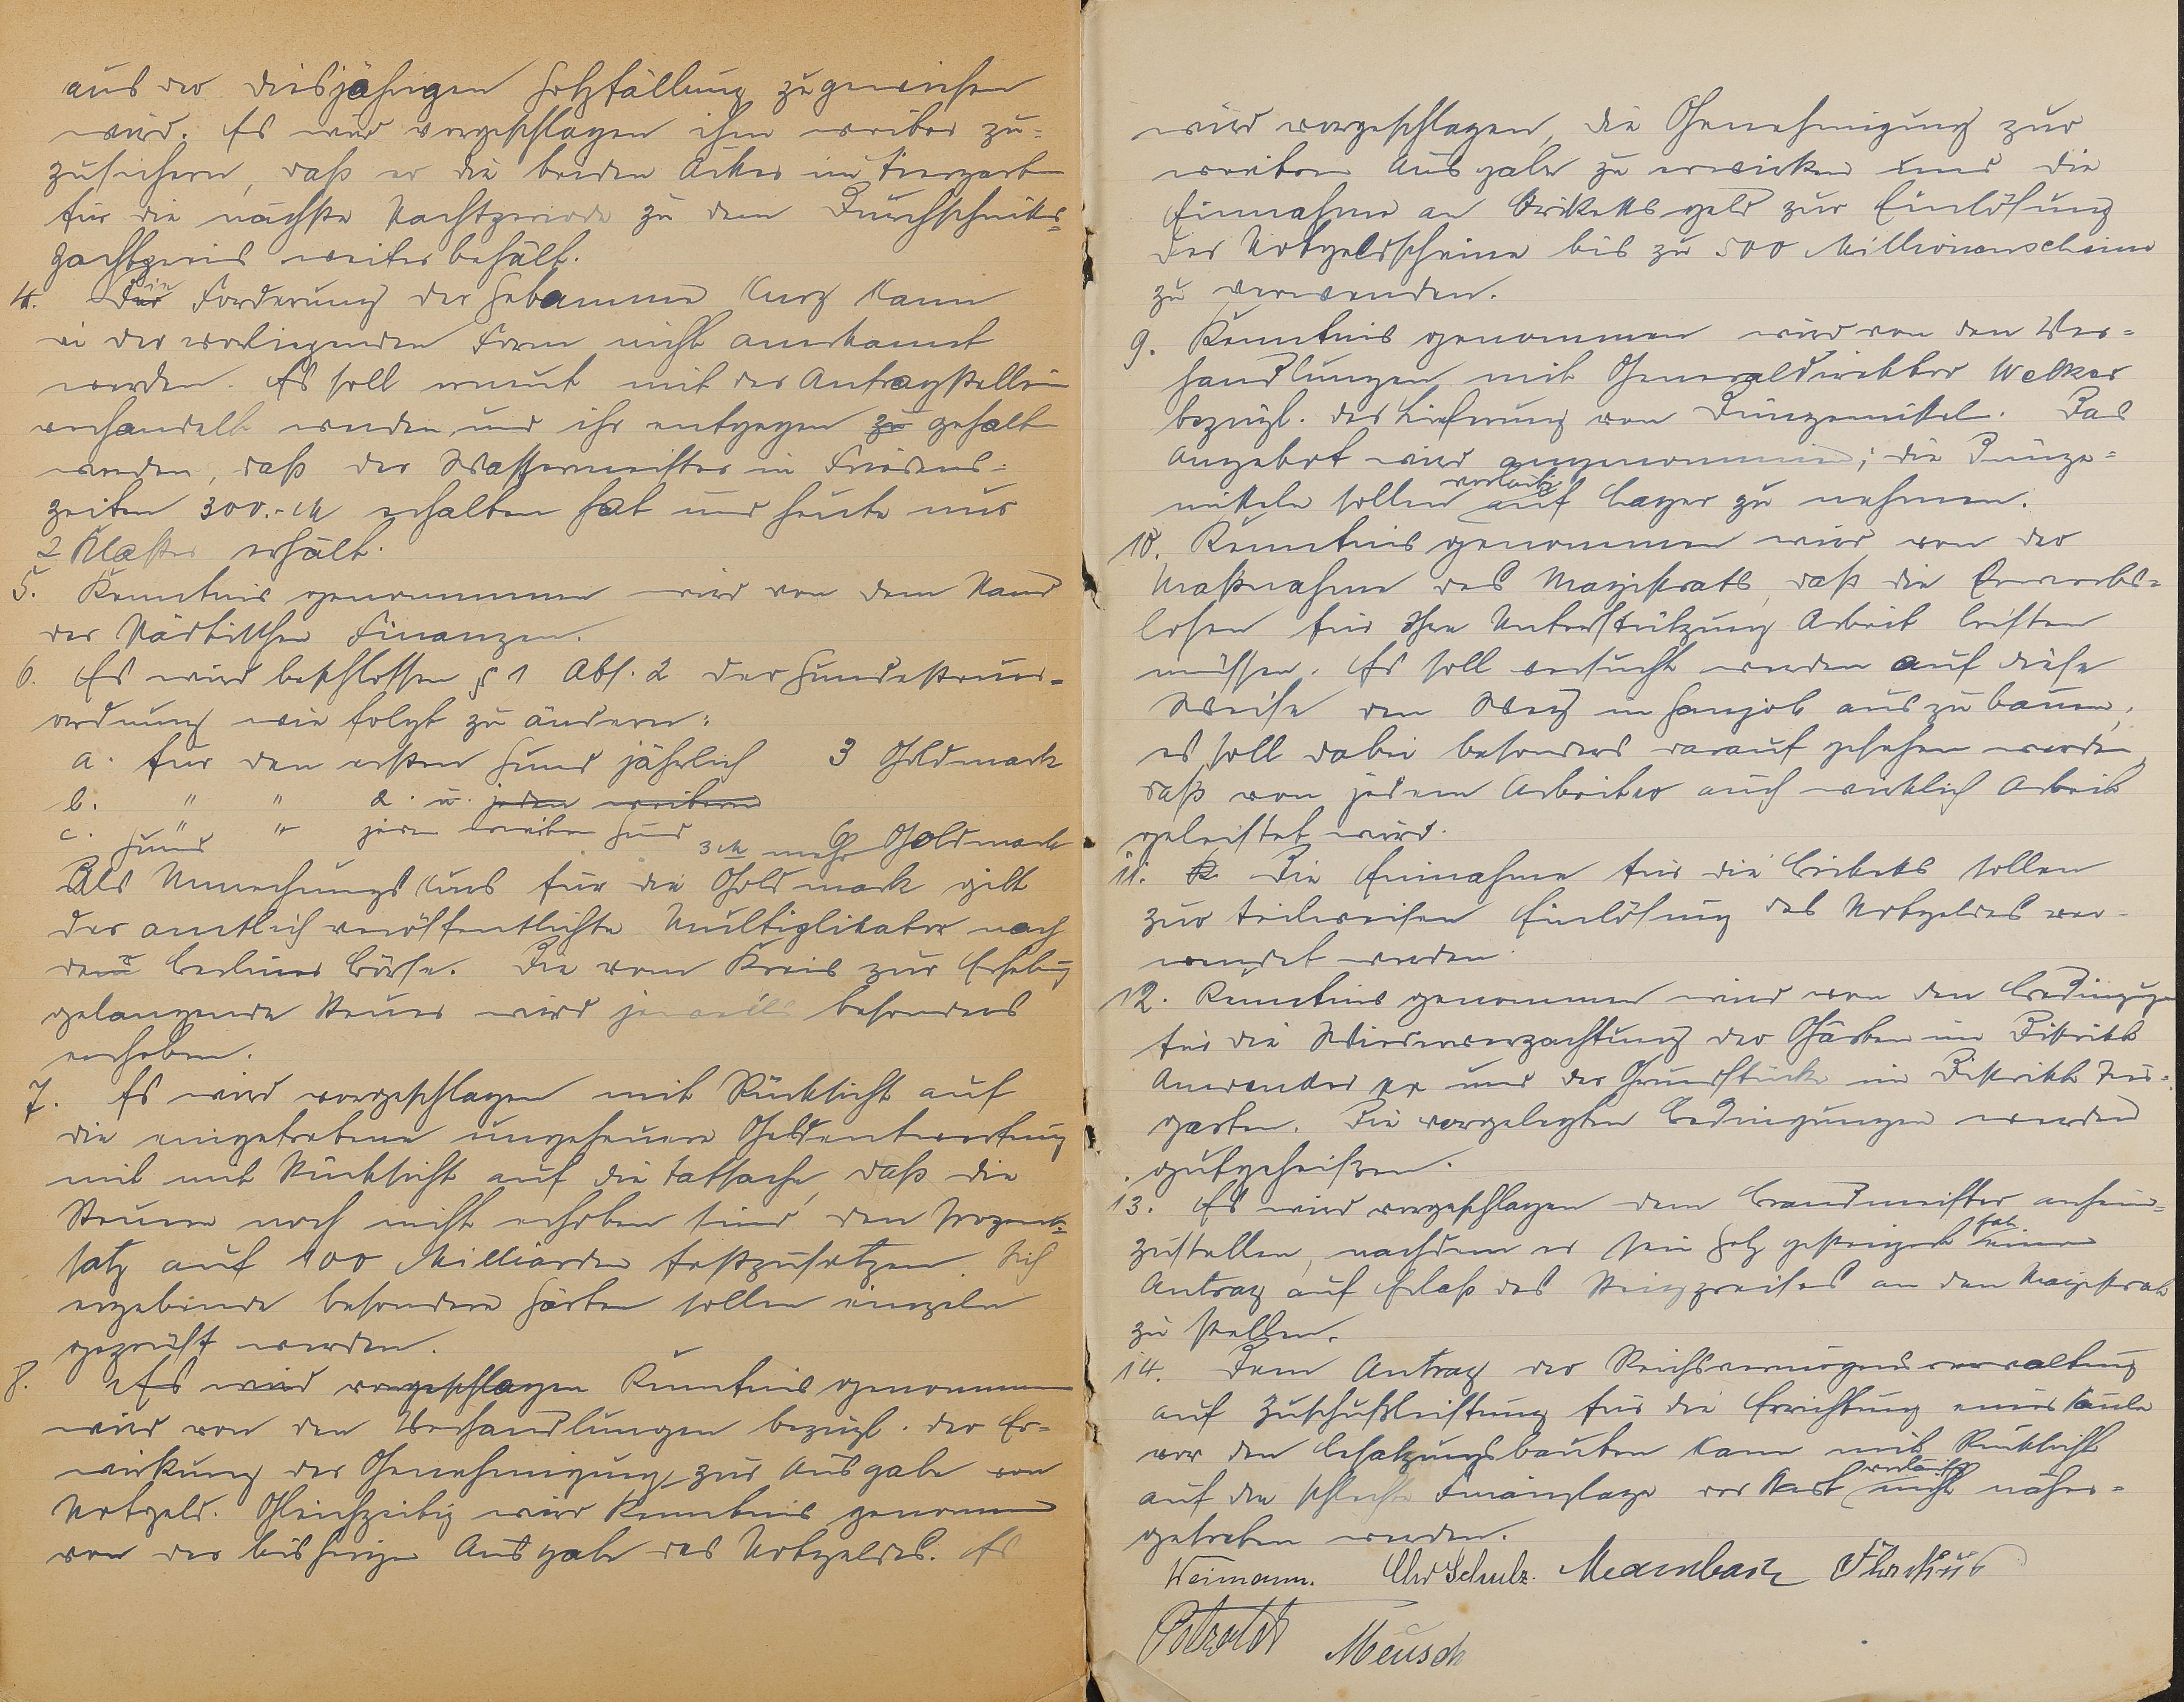 aus der diesjährigen Holzfällung zugewiesen
wird. Es wird vorgeschlagen ihm weiter zu-
zusichern, daß er die beiden Äcker im Tiergarten
für die nächste Pachtperiode zu dem Durchschnitts-
pachtpreis weiter behält.
4. Die Forderung der Hebamme Kurz kann
in der vorliegenden Form nicht anerkannt
werden. Es soll erneut mit der Antragstellerin
verhandelt werden und ihr entgegen zu gehalten
werden, daß der Wassermeister in Friedens-
zeiten 300.- M erhalten hat und heute nur
2 Klafter erhält.
5. Kenntnis genommen wird von dem Stand
der städtischen Finanzen.
6. Es wird beschlossen § 1 Abs. 2 der Hundesteuer-
ordnung wie folgt zu ändern:
a. für den ersten Hund jährlich 3 Goldmark
b. " " 2. u. jeden weiteren
c. " " jeden weiteren Hund
Hund 3 M mehr 6 Goldmark
Als Umrechnungskurs für die Goldmark gilt
der amtlich veröffentlichte Multiplikator nach
der Berliner Börse. Die vom Kreis zur Erhebung
gelangende Steuer wird jeweils besonders
erhoben.
7. Es wird vorgeschlagen mit Rücksicht auf
die eingetretene ungeheuere Geldentwertung
mit und Rücksicht auf die Tatsache, daß die
Steuern noch nicht erhoben sind, den Prozent-
satz auf 100 Milliarden festzusetzen. Sich
ergebende besondere Härten sollen einzeln
geprüft werden.
8. Es wird vorgeschlagen Kenntnis genommen
wird von den Verhandlungen bezügl. der Er-
wirkung der Genehmigung zur Ausgabe von
Notgeld. Gleichzeitig wird Kenntnis genommen
von der bisherigen Ausgabe des Notgeldes. Es
wird vorgeschlagen, die Genehmigung zur
weiteren Ausgabe zu erwirken und die
Einnahme an Brikettsgeld zur Einlösung
der Notgeldscheine bis zu 500 Millionenscheine
zu verwenden.
9. Kenntnis genommen wird von den Ver-
handlungen mit Generaldirektor Welker
bezügl. der Lieferung von Düngemittel. Das
Angebot wird angenommen; die Dünge-
mitteln sollen vorläufig auf Lager zu nehmen.
10. Kenntnis genommen wird von der
Maßnahme des Magistrats, daß die Erwerbs-
losen für ihre Unterstützung Arbeit leisten
müssen. Es soll versucht werden auf diese
Weise den Weg in Hanjob auszubauen;
es soll dabei besonders darauf gesehen werden,
daß von jedem Arbeiter auch wirklich Arbeit
geleistet wird.
11. Die Einnahme für die Briketts sollen
zur teilweisen Einlösung des Notgeldes ver-
wendet werden.
12. Kenntnis genommen wird von den Bedingungen
für die Wiederverpachtung der Gärten im Distrikt
Anwender pp und der Grundstücke im Distrikt Tier-
garten. Die vorgelegten Bedingungen werden
gutgeheißen.
13. Es wird vorgeschlagen dem Brandmeister anheim-
zustellen, nachdem er sein Holz gesteigert hat einen
Antrag auf Erlaß des Steigpreises an den Magistrat
zu stellen.
14. Dem Antrag der Reichsvermögensverwaltung
auf Zuschußleistung für die Errichtung einer Säule
vor den Besatzungsbauten kann mit Rücksicht
auf die schlechte Finanzlage der Stadt vorläufig nicht näher-
getreten werden.
Weimann. Chr Schulz. Meambach
Petzoldt Meusch